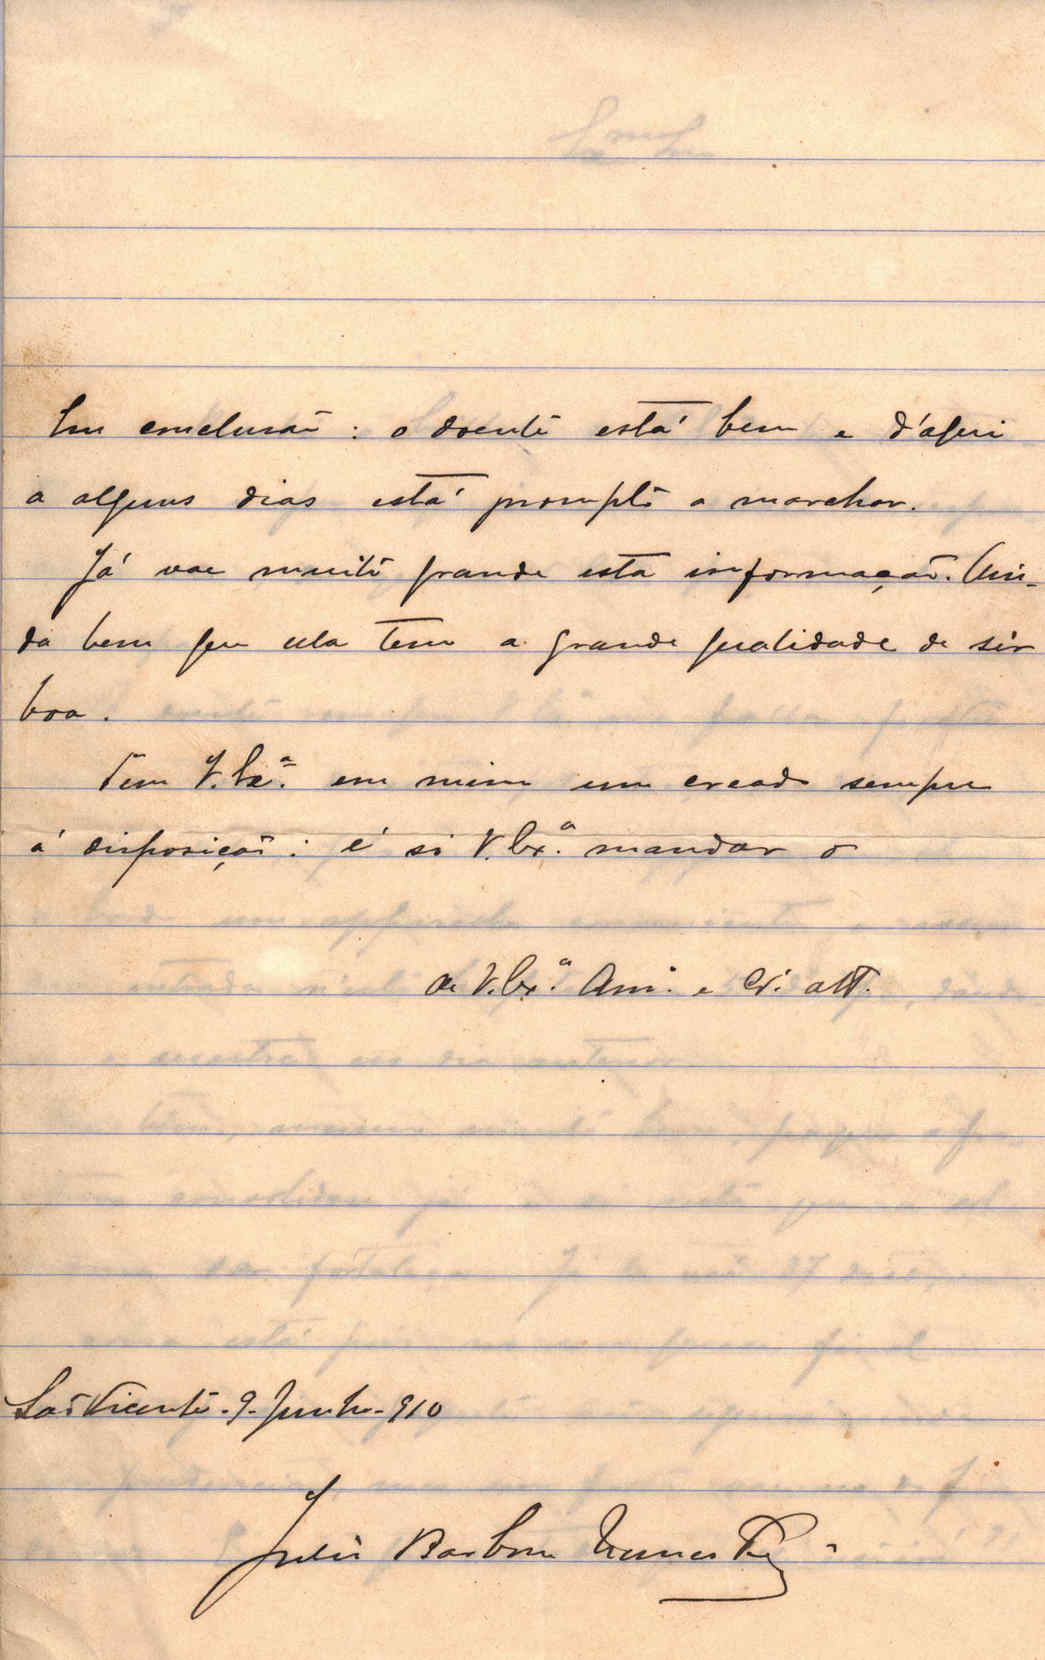 Em conclusão: o doente está bem e d'aqui
a alguns dias está prompto a marchar.
Já vae muito grande esta informação. Ain-
da bem que ella tem a grande qualidade de sêr
boa.
Tem V. Ex.ª em mim um creado sempre
á disposição: é só V. Ex.ª mandar o
de V. Ex.ª Am.º e Cr.º att.
São Vicente - 9 - Junho - 910
Julio Barbosa Nunes Pr.ª